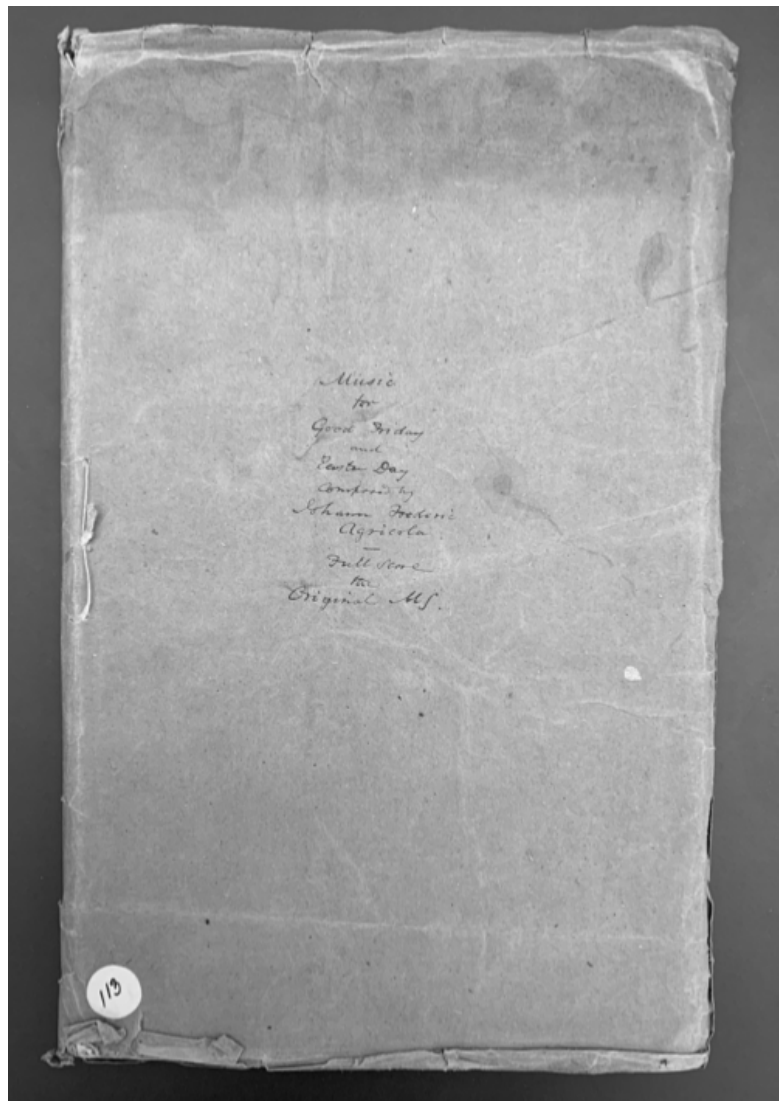 Music
for
Good Friday
and
Easter Day
composed by
Johann Frederic
Agricola.
—
Full Score
the
Original MS.
113